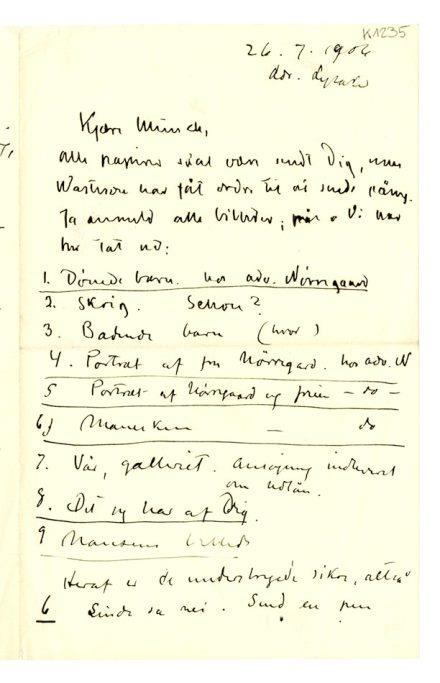 K1235
26.7.1906
adr.
Kjære Munch,
alle papirer skal være sendt Dig, men
har fåt ordre til at sende
Ja anmeld alle billeder; Vi har
her tat ud:
1. Dömede barn. hos adv. Nörregaard
2. Skrig. Schou?
3. Badende barn (hvor)
4. Portræt af fru Nörregard. hos adv. N
5 Portræt af Nörregaard og fruen – do –
6) – do
7. Vår, galleriet. Ansögning indleveret
om udlån.
8. Det jeg har af Dig.
9 Hansens billede
Heraf er de understregede sikre, altså
6 Linde sa nei. Send en pen